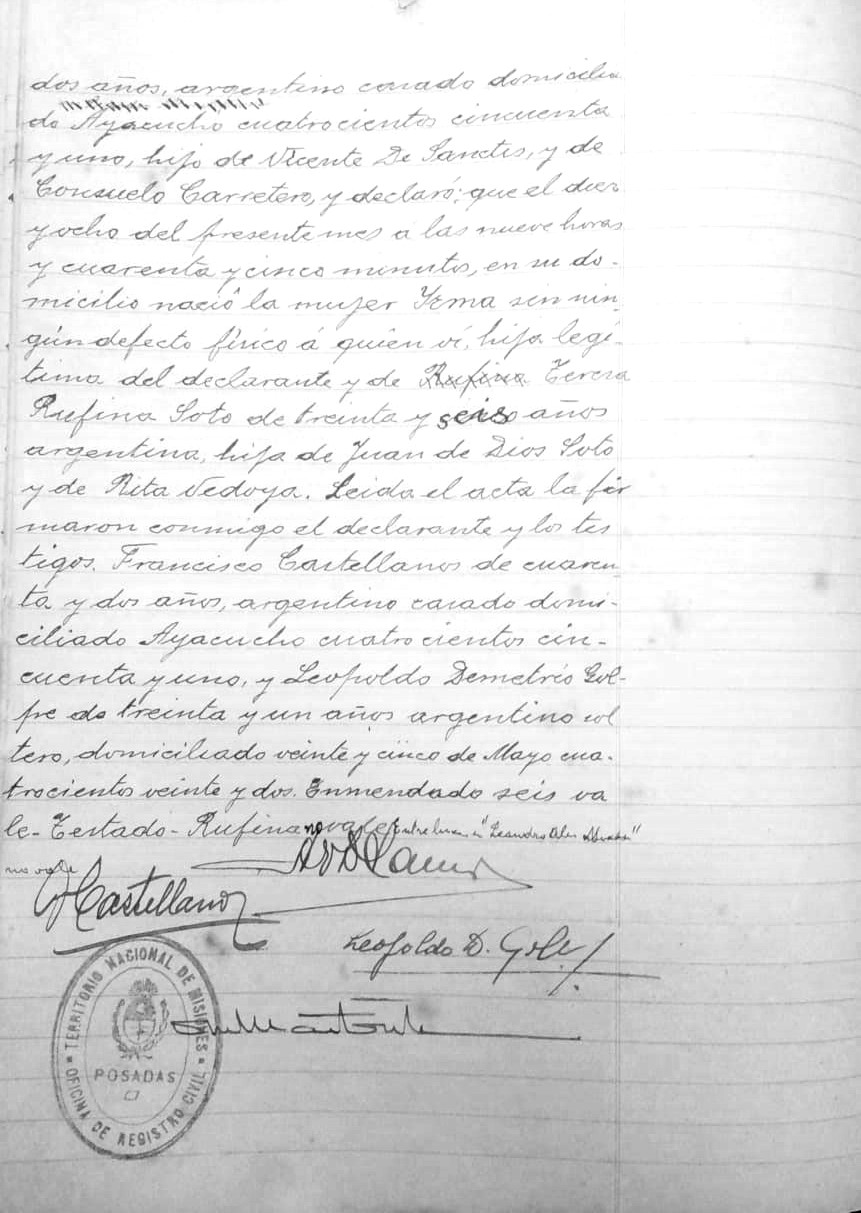 dos años, argentino casado domicilia
do Ayacucho cuatrocientos cincuenta
y uno, hijo de Vicente De Sanctis, y de
Consuelo Carretero, y declaró; que el diez
y ocho del presente mes a las nueve horas
y cuarenta y cinco minutos, en su do-
micilio nació la mujer Irma sin nin-
gún defecto físico á quien ví, hija legí-
tima del declarante y de Rufina Teresa
Rufina Soto de treinta y seis años
argentina, hija de Juan de Dios Soto
y de Rita Vedoya. Leida el acta la fir
maron conmigo el declarante y los tes
tigos. Francisco Castellanos de cuaren-
ta y dos años, argentino casado domi-
ciliado Ayacucho cuatrocientos cin-
cuenta y uno, y Leopoldo Demetrio Gol-
pe de treinta y un años argentino sol
tero, domiciliado veinte y cinco de Mayo cua-
trocientos veinte y dos. Enmendado seis va
le- Testado- Rufina no vale Entre lineas "Leandro
no vale
Castellanos
Leopoldo D.
TERRITORIO NACIONAL DE MISIONES
POSADAS
OFICINA DE REGISTRO CIVIL